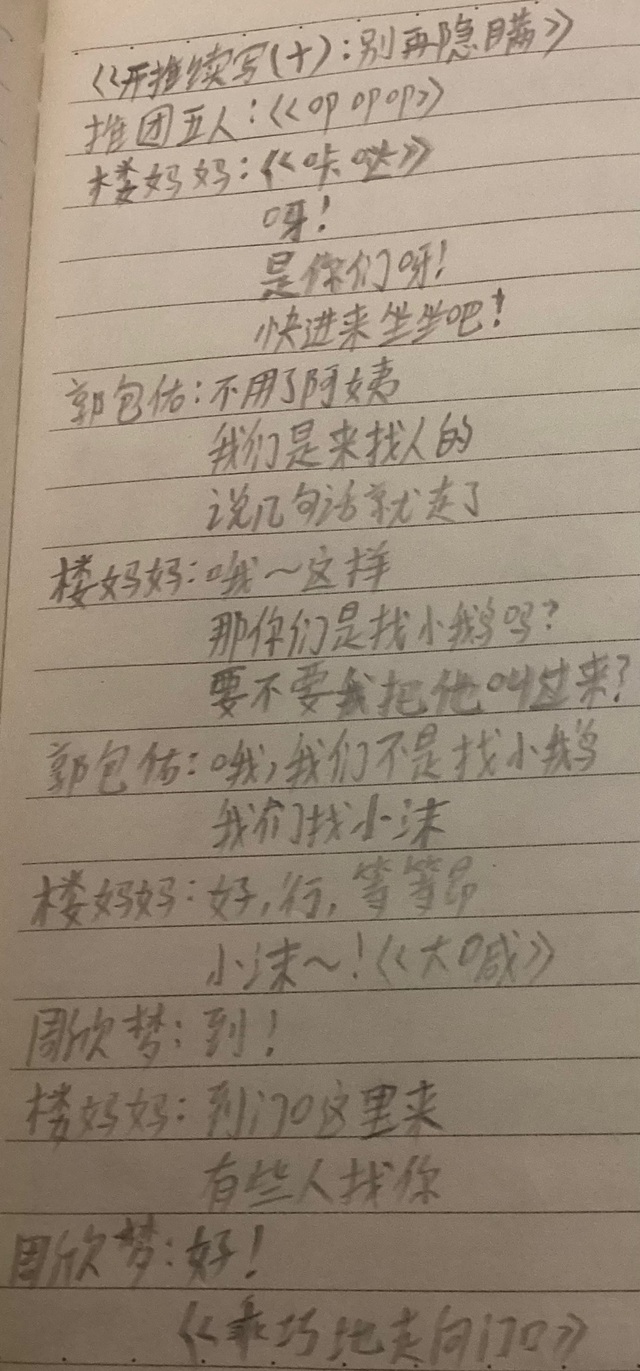 《开推续写(十):别再隐瞒》
推团五人:《叩叩叩》
楼妈妈:《咔哒》
呀!
是你们呀!
快进来坐坐吧!
郭包佑:不用了阿姨
我们是来找人的
说几句话就走了
楼妈妈:哦~这样
那你们是找小鹅吗?
要不要我把他叫过来?
郭包佑:哦,我们不是找小鹅
我们找小沫
楼妈妈:好,行,等等昂
小沫~!《大喊》
周欣梦:到!
楼妈妈:到门口这里来
有些人找你
周欣梦:好!
《乖巧地走向门口》